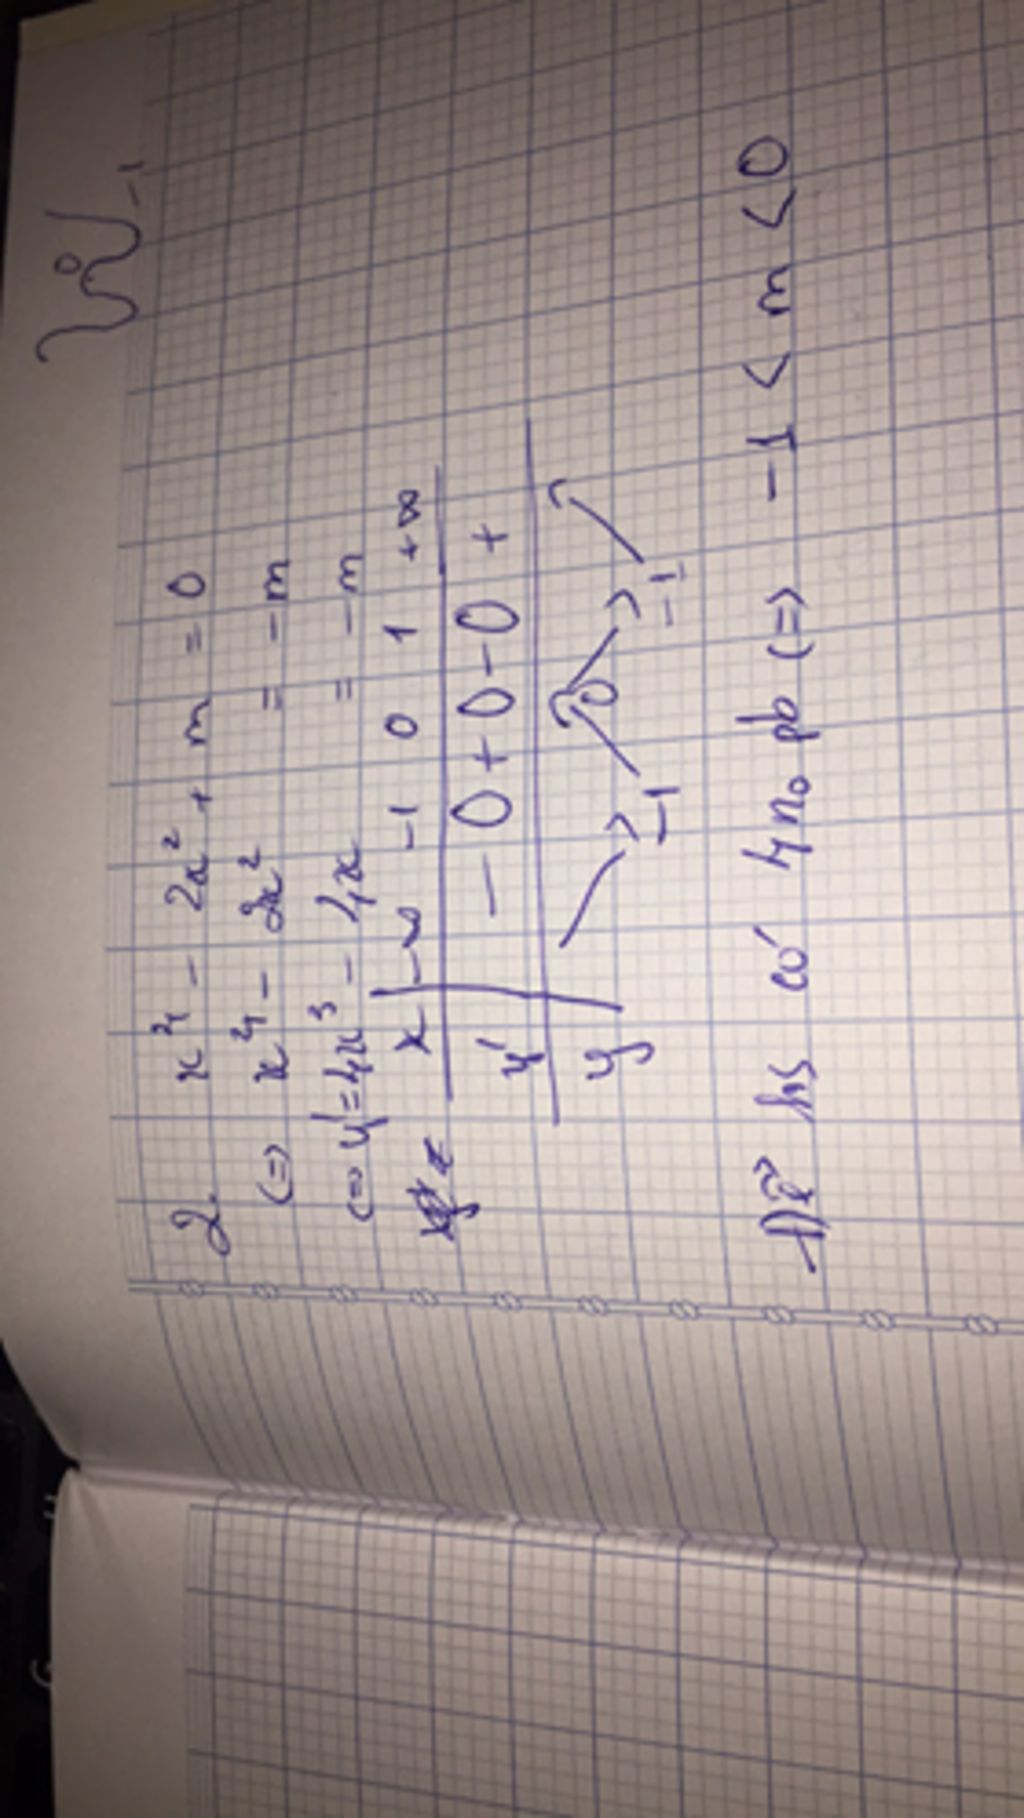 0
-1
2. x⁴ - 2x² + m = 0
(=) x⁴ - 2x² = -m
(=) y' = 4x³ - 4x = -m
x -∞ -1 0 1 +∞
y' - 0 + 0 - 0 +
y
0
-1 -1
Để hs có 4 no pb (=) -1 < m < 0